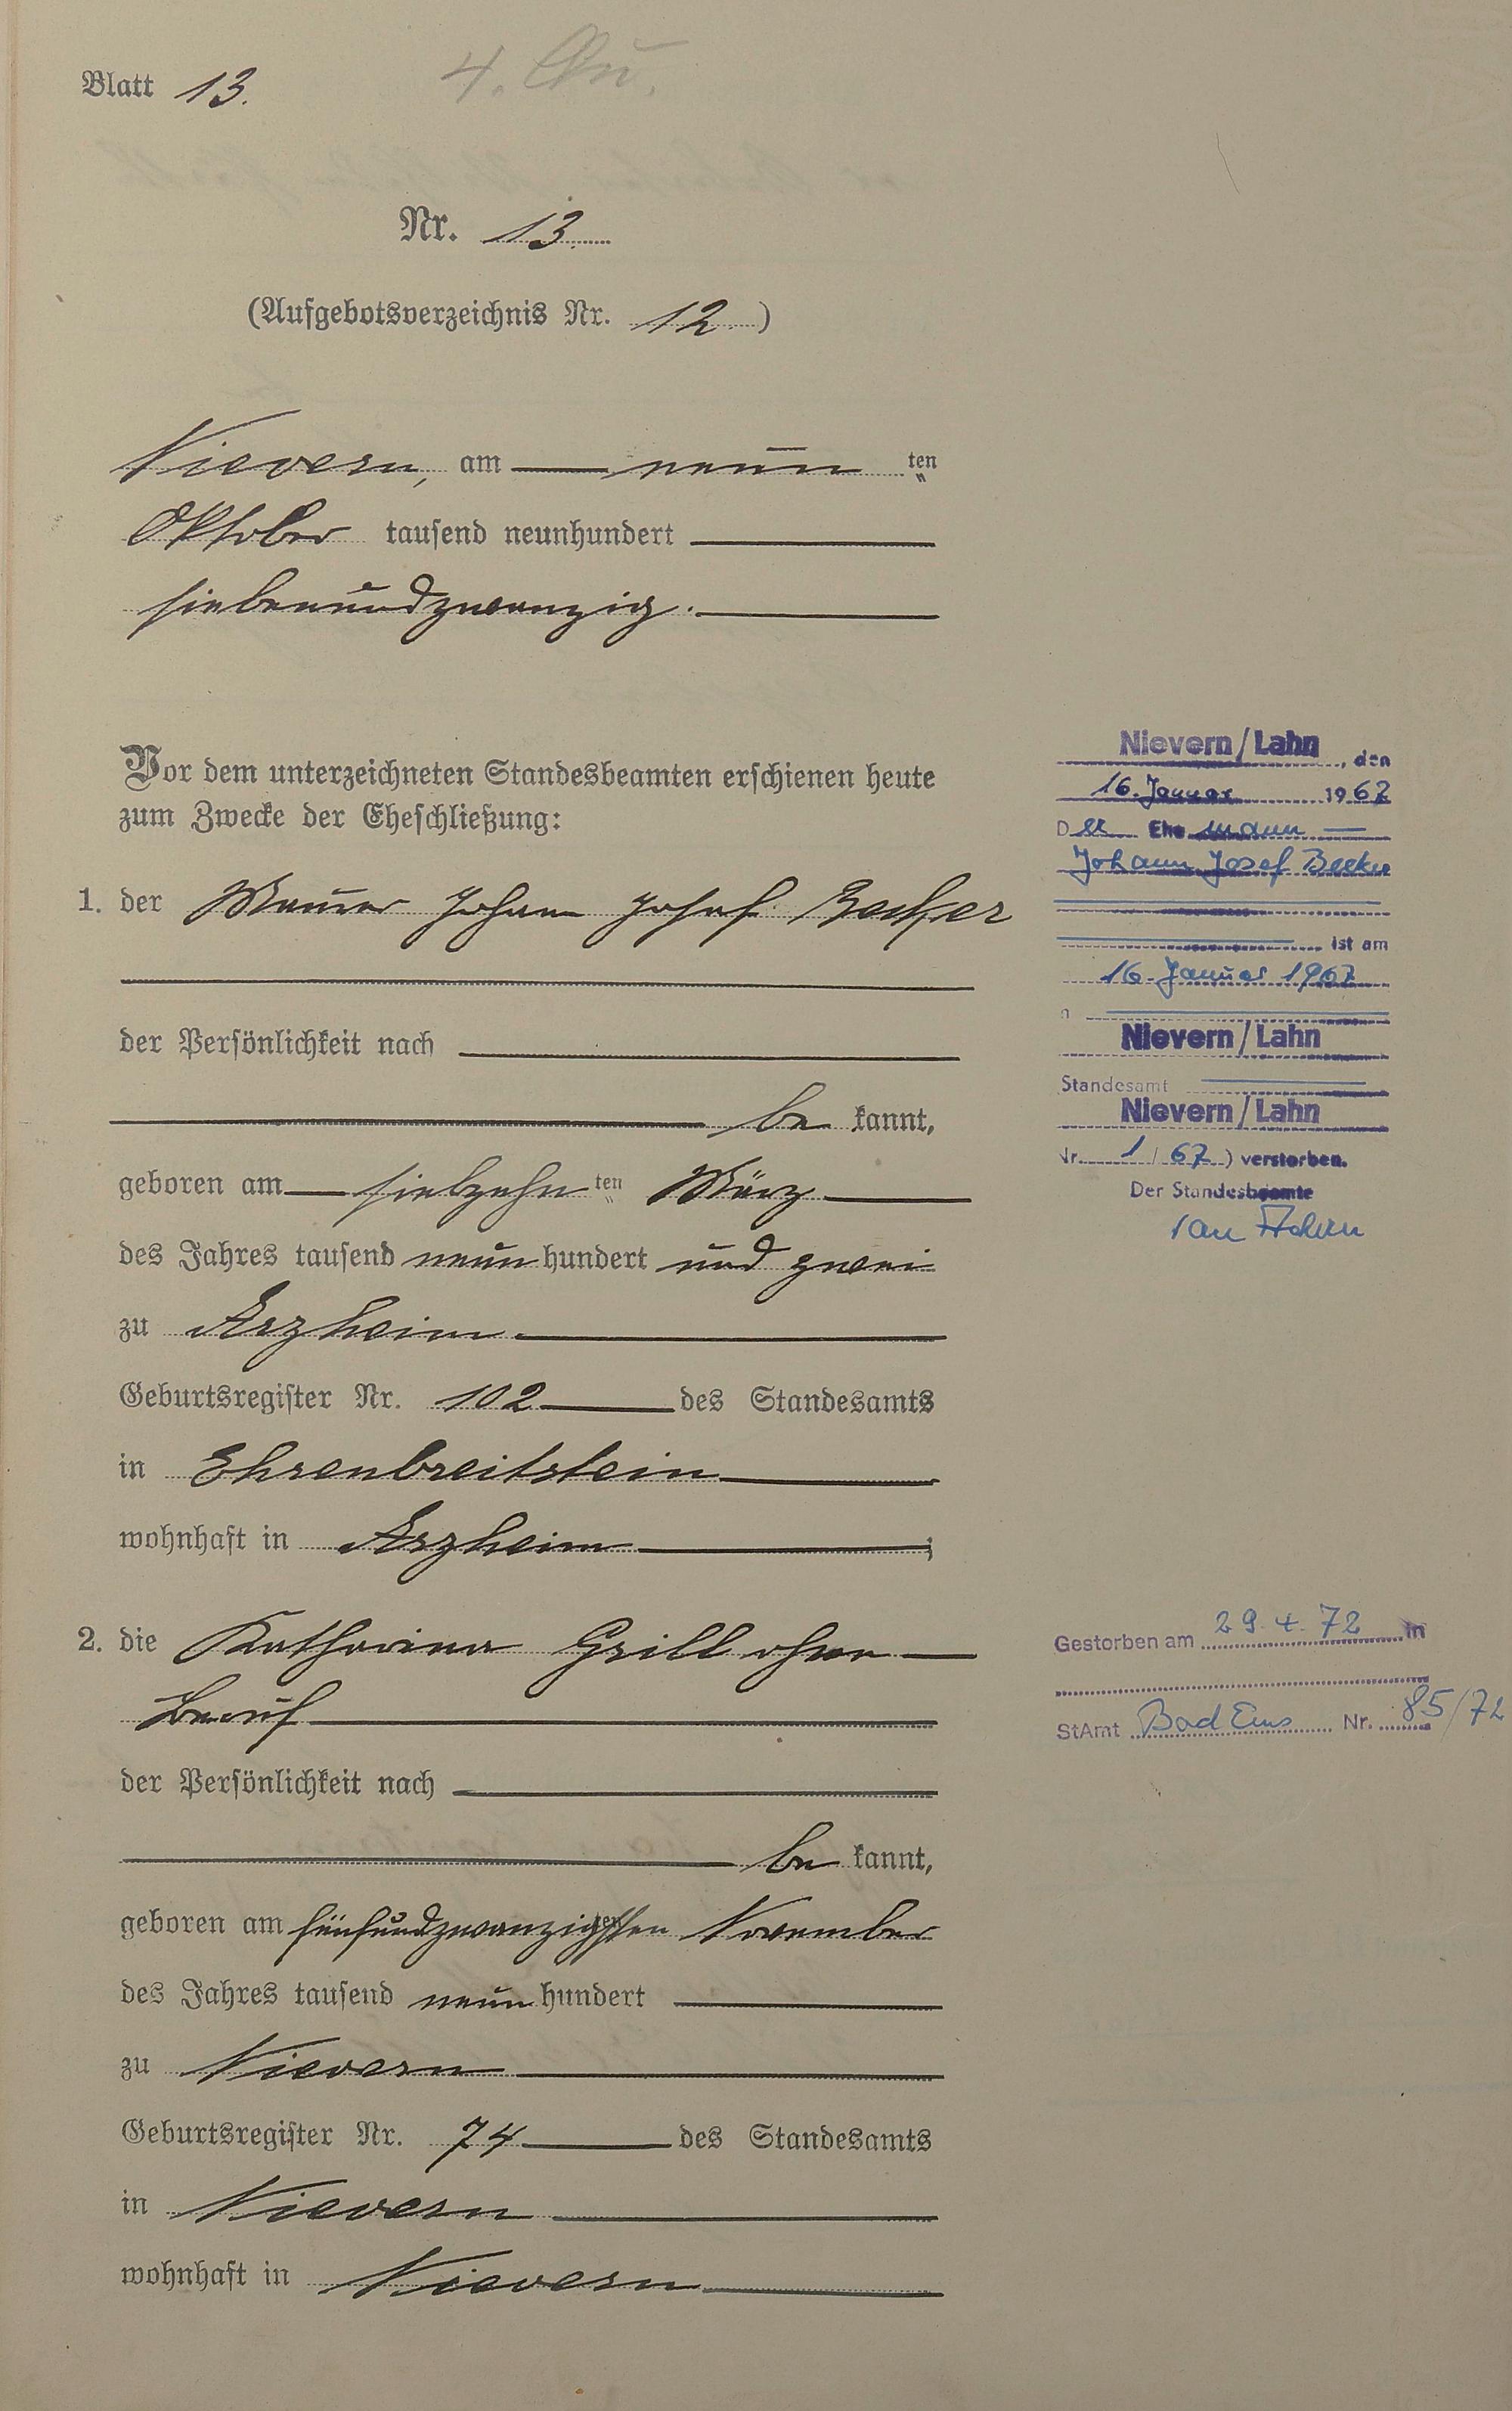 Blatt 13.
4. Qu.
Nr. 13.
(Aufgebotsverzeichnis Nr. 12)
Nievern, am neun ten
Oktober tausend neunhundert
siebenundzwanzig.
Vor dem unterzeichneten Standesbeamten erschienen heute
zum Zwecke der Eheschließung:
1. der Maurer Johann Josef Becker
der Persönlichkeit nach
be kannt,
geboren am siebzehn ten März
des Jahres tausend neun hundert und zwei
zu Arzheim
Geburtsregister Nr. 102 des Standesamts
in Ehrenbreitstein
wohnhaft in Arzheim ;
2. die Katharina Grill ohne
Beruf
der Persönlichkeit nach
be kannt,
geboren am fünfundzwanzigsten November
des Jahres tausend neun hundert
zu Nievern
Geburtsregister Nr. 74 des Standesamts
in Nievern
wohnhaft in Nievern
Nievern/Lahn, den
16. Januar 1967
Der Ehemann
Johann Josef Becker
ist am
16. Januar 1967
Nievern/Lahn
Standesamt
Nievern/Lahn
Nr. 1/67) verstorben.
Der Standesbeamte
Gestorben am 29.4.72 in
StAmt Bad Ems Nr. 85/72